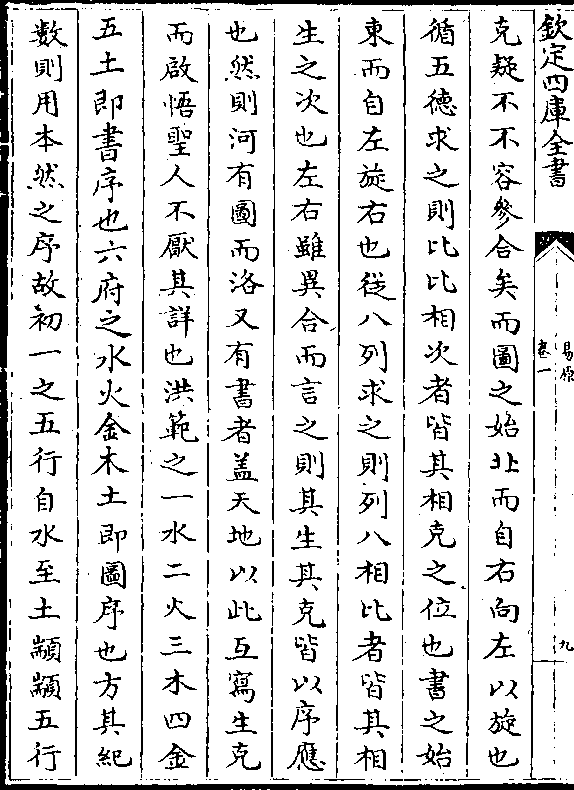 欽定四庫全書
易原
卷一
九
克疑不不容參合矣而圖之始北而自右向左以旋也
循五德求之則比比相次者皆其相克之位也書之始
東而自左旋右也從八列求之則列八相比者皆其相
生之次也左右雖異合而言之則其生其克皆以序應
也然則河有圖而洛又有書者蓋天地以此互寫生克
而啟悟聖人不厭其詳也洪範之一水二火三木四金
五土即書序也六府之水火金木土即圖序也方其紀
數則用本然之序故初一之五行自水至土顓顓五行